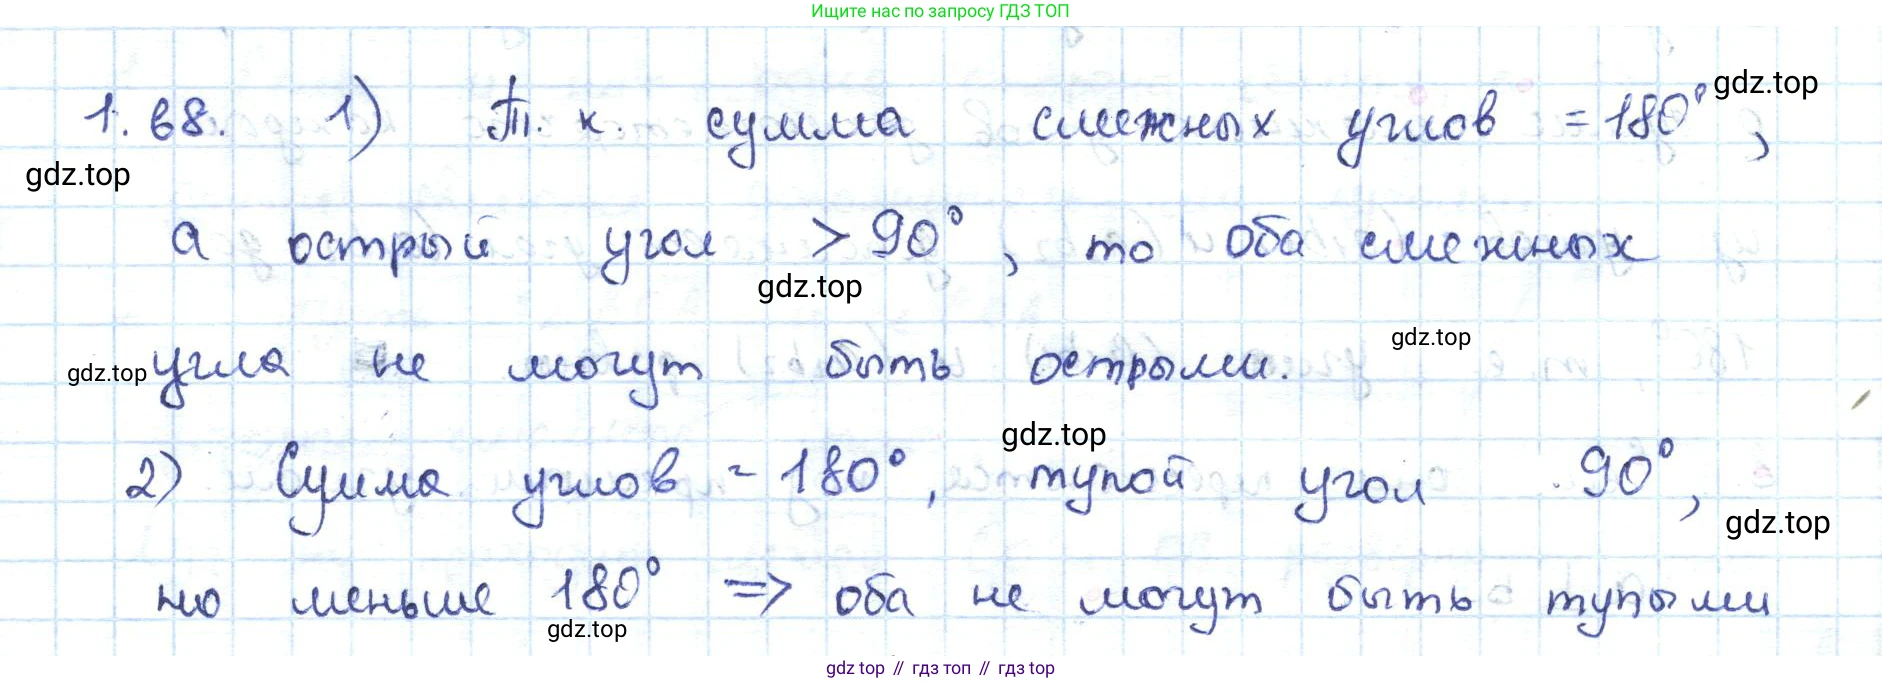 Ищите нас по запросу ГДЗ ТОП
1.68. 1) Т. к. сумма смежных углов = 180°,
gdz.top
gdz.top
а острый угол > 90°, то оба смежных
gdz.top
gdz.top
gdz.top
угла не могут быть острыми.
gdz.top
2) Сумма углов = 180°, тупой угол 90°,
gdz.top
но меньше 180° => оба не могут быть тупыми
gdz.top
gdz top // гдз топ // гдз top